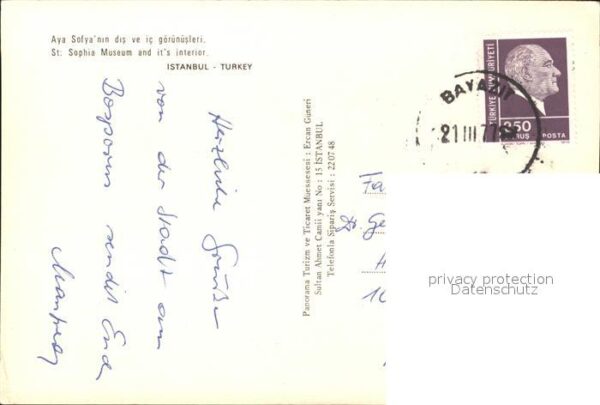 Aya Sofya'nın dış ve iç görünüşleri.
St: Sophia Museum and it's interior.
ISTANBUL - TURKEY
Herzliche Grüße
von der Stadt am
Bosporus sendet Euch
Manfred
Panorama Turizm ve Ticaret Müessesesi : Ercan Güneri
Sultan Ahmet Camii yanı No : 15 İSTANBUL
Telefonla Sipariş Servisi : 22 07 48
TÜRKİYE CUMHURİYETİ
250
KURUŞ
POSTA
BAYAZIT
21 III 77
Fa
Ge
H
10
privacy protection
Datenschutz